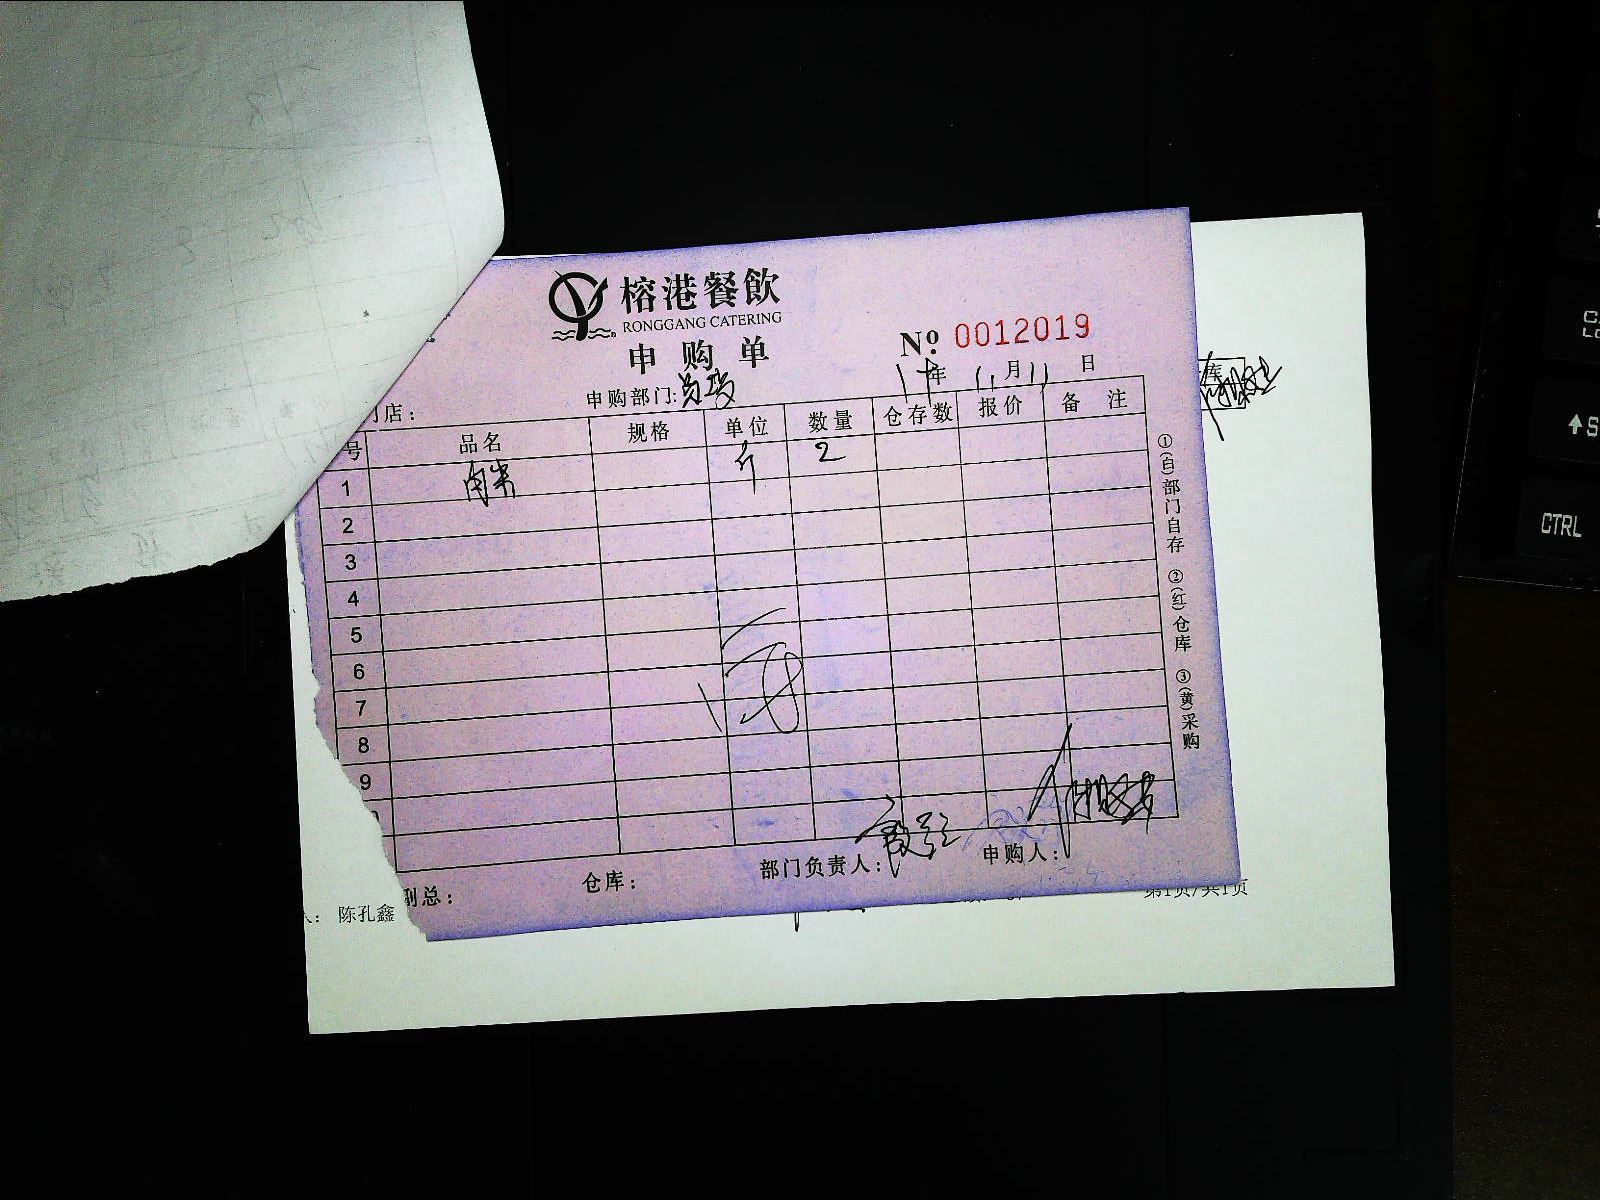 榕港餐飲
RONGGANG CATERING
申购单
No 0012019
年 11月11日
店: 申购部门:
号 品名 规格 单位 数量 仓存数 报价 备注
1 肉米 斤 2
2
3
4
5
6
7
8
9
①(白)部门自存 ②(红)仓库 ③(黄)采购
副总: 仓库: 部门负责人: 申购人:
陈孔鑫 第1页/共1页
库
CTRL